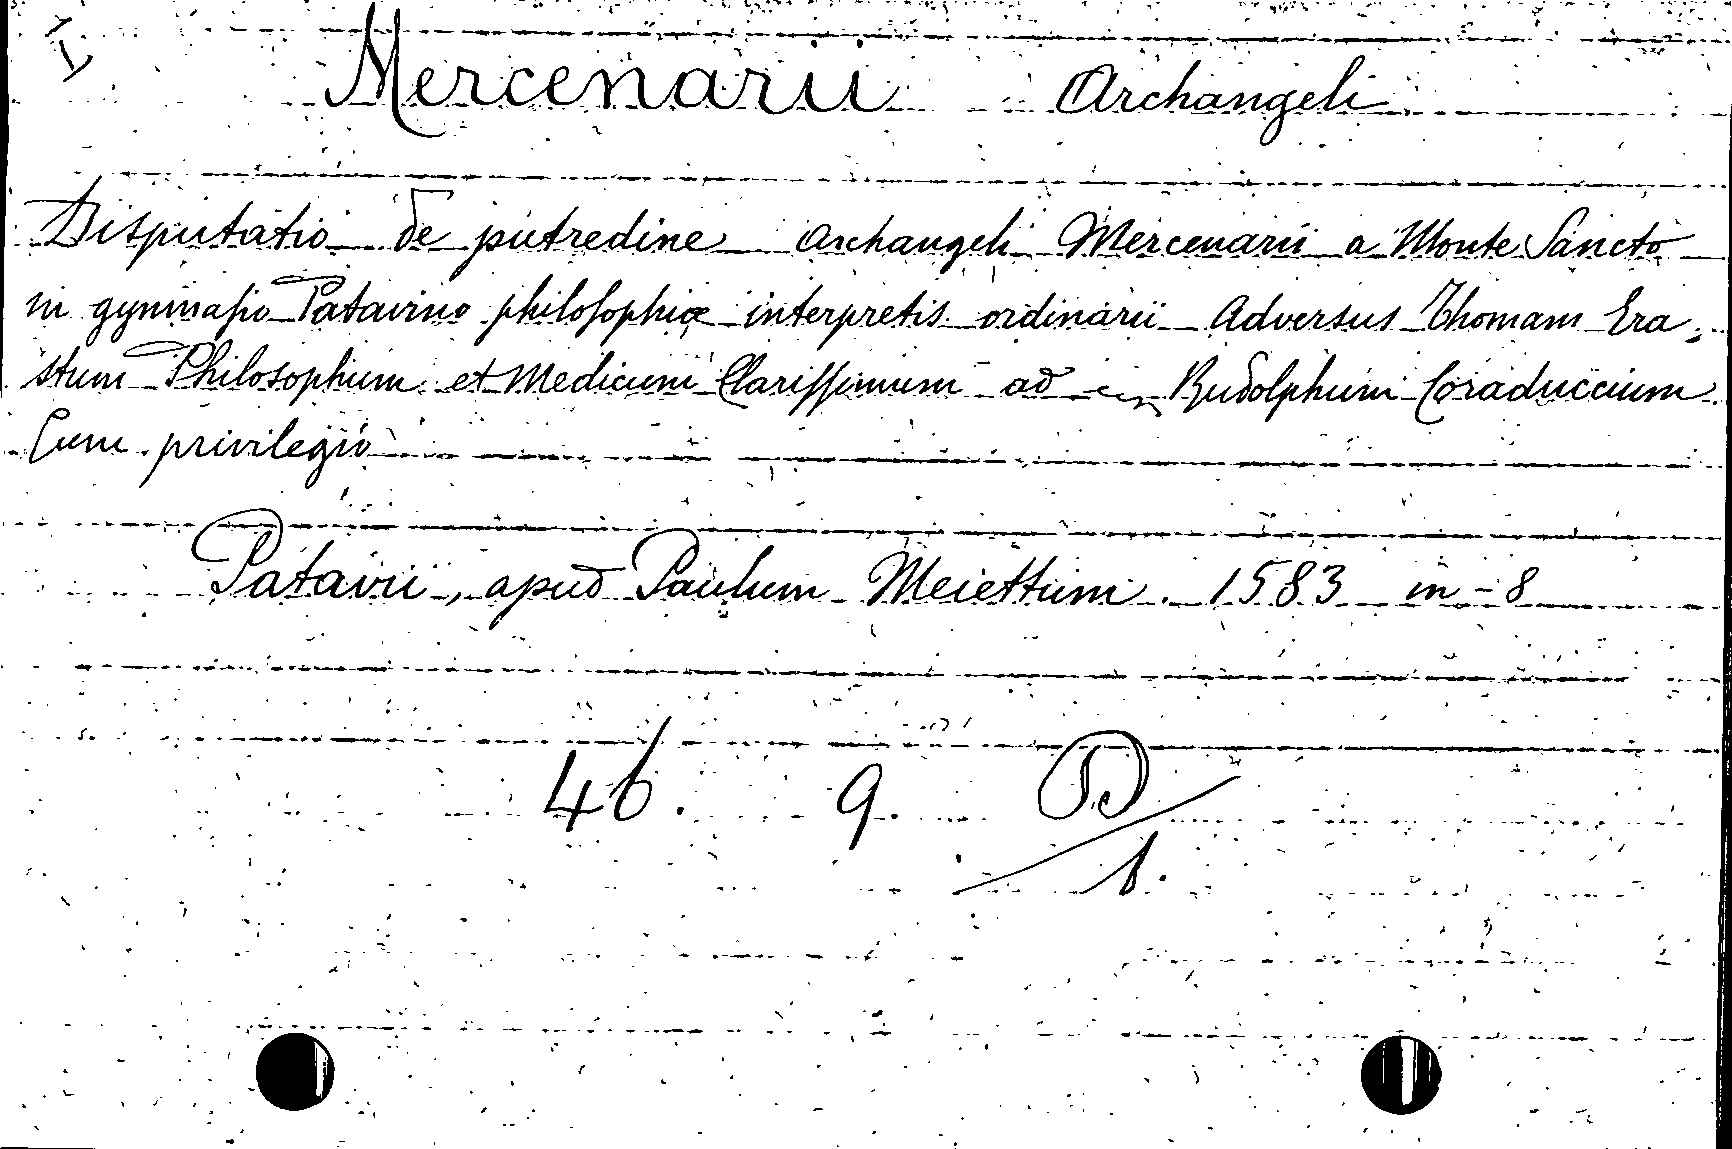 I
Mercenarii Archangeli
Disputatio de putredine Archangeli Mercenarii a Monte Sancto
in gymnasio Patavino philosophiæ interpretis ordinarii Adversus Thomam Era-
stum Philosophum et Medicum Clarissimum ad Rudolphum Coraduccium
Cum privilegio
Patavii, apud Paulum Meiettum. 1583 in-8
46. 9. D
1.